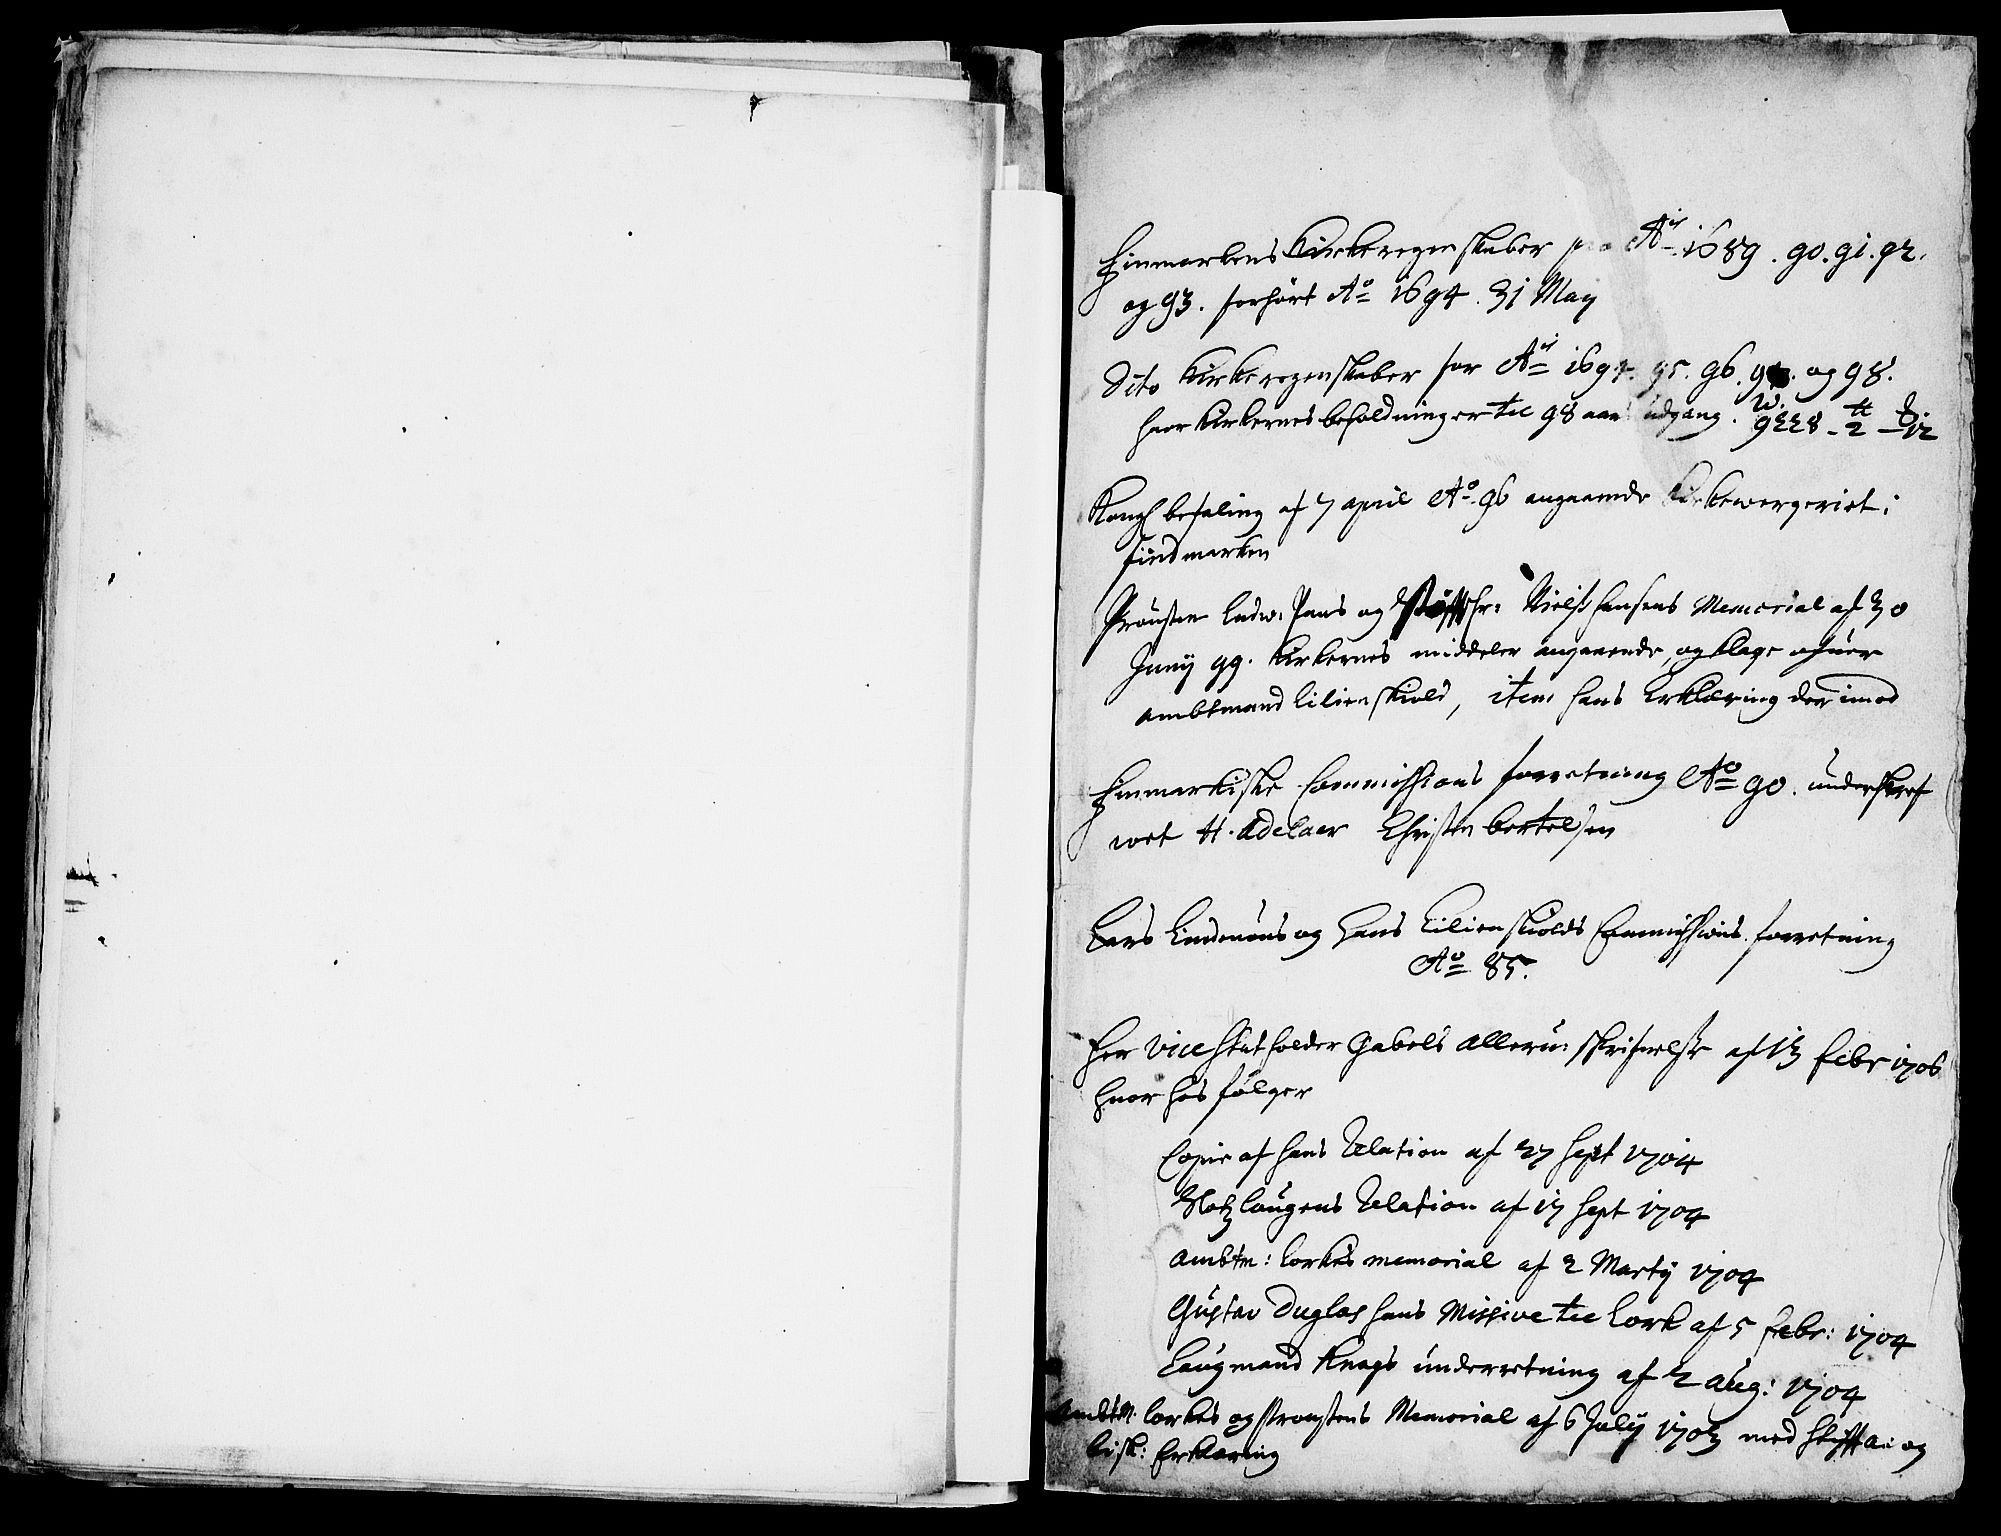 Finmarkens Kirkeregenskaber pro A͞is 1689. 90. 91. 92.
og 93. forhört A͞o 1694. 31 May
Dito Kirkeregenskaber for A͞is 1694. 95. 96. 97. og 98.
hvor Kirkernes beholdninger til 98 aars udgang. 9228 - 2 - 12
Kongl befaling af 7 april A͞o 96 angaaende Kirkewergeriet i
Findmarken
Prousten Ludw. Paus og Hr: Niels Hansens Memorial af 30
Juny 99. Kirkernes middeler angaaende, og klage ofuer
ambtmand Lilienskiold, item hans Erklæring der imod
Finmarkiske Commissions forretning A͞o 90. underskref
wet H. Adelaer Christen bertelsen
Lars Lindenous og Hans Lilienskiolds Commissions forretning
A͞o 85.
Her Vice Statholder Gabels alleru: skrifvelse af 13 febr 1706
hvor hos fölger
Copie af hans Relation af 27 Sept 1704
Slotzlougens Relation af 17 Sept 1704
Ambtm: Lorkes memorial af 2 Marty 1704
Gustav Duglas hans Missive til Lork af 5 febr: 1704
Laugmand Knags underretning af 2 aug: 1704
Ambtm. Lorkes og Proustens Memorial af 6 July 1703 med Stifft a: og
bisk: Erklaring